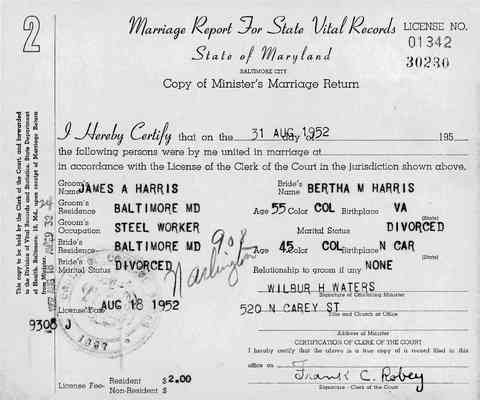 2
Marriage Report For State Vital Records
LICENSE NO.
State of Maryland
01342
BALTIMORE CITY
30280
Copy of Minister's Marriage Return
This copy to be held by the Clerk of the Court, and forwarded
to the Division of Vital Records and Statistics, State Department
of Health, Baltimore 18, Md., upon receipt of Marriage Return
from Minister.
I Hereby Certify that on the 31 AUG 1952 day of 195
the following persons were by me united in marriage at
in accordance with the License of the Clerk of the Court in the jurisdiction shown above.
Groom's Name JAMES A HARRIS Bride's Name BERTHA M HARRIS
Groom's Residence BALTIMORE MD Age 55 COL Birthplace VA
(State)
Groom's Occupation STEEL WORKER Marital Status DIVORCED
Bride's Residence BALTIMORE MD Age 45 COL Birthplace N CAR
(State)
Bride's Marital Status DIVORCED Relationship to groom if any NONE
908
Warlington
WILBUR H WATERS
Signature of Officiating Minister
License Date AUG 18 1952 520 N CAREY ST
Title and Church or Office
9308 J
Address of Minister
CERTIFICATION OF CLERK OF THE COURT
I hereby certify that the above is a true copy of a record filed in this
office on Frank C. Robey
License Fee- Resident $2.00
Non-Resident $
Signature - Clerk of the Court